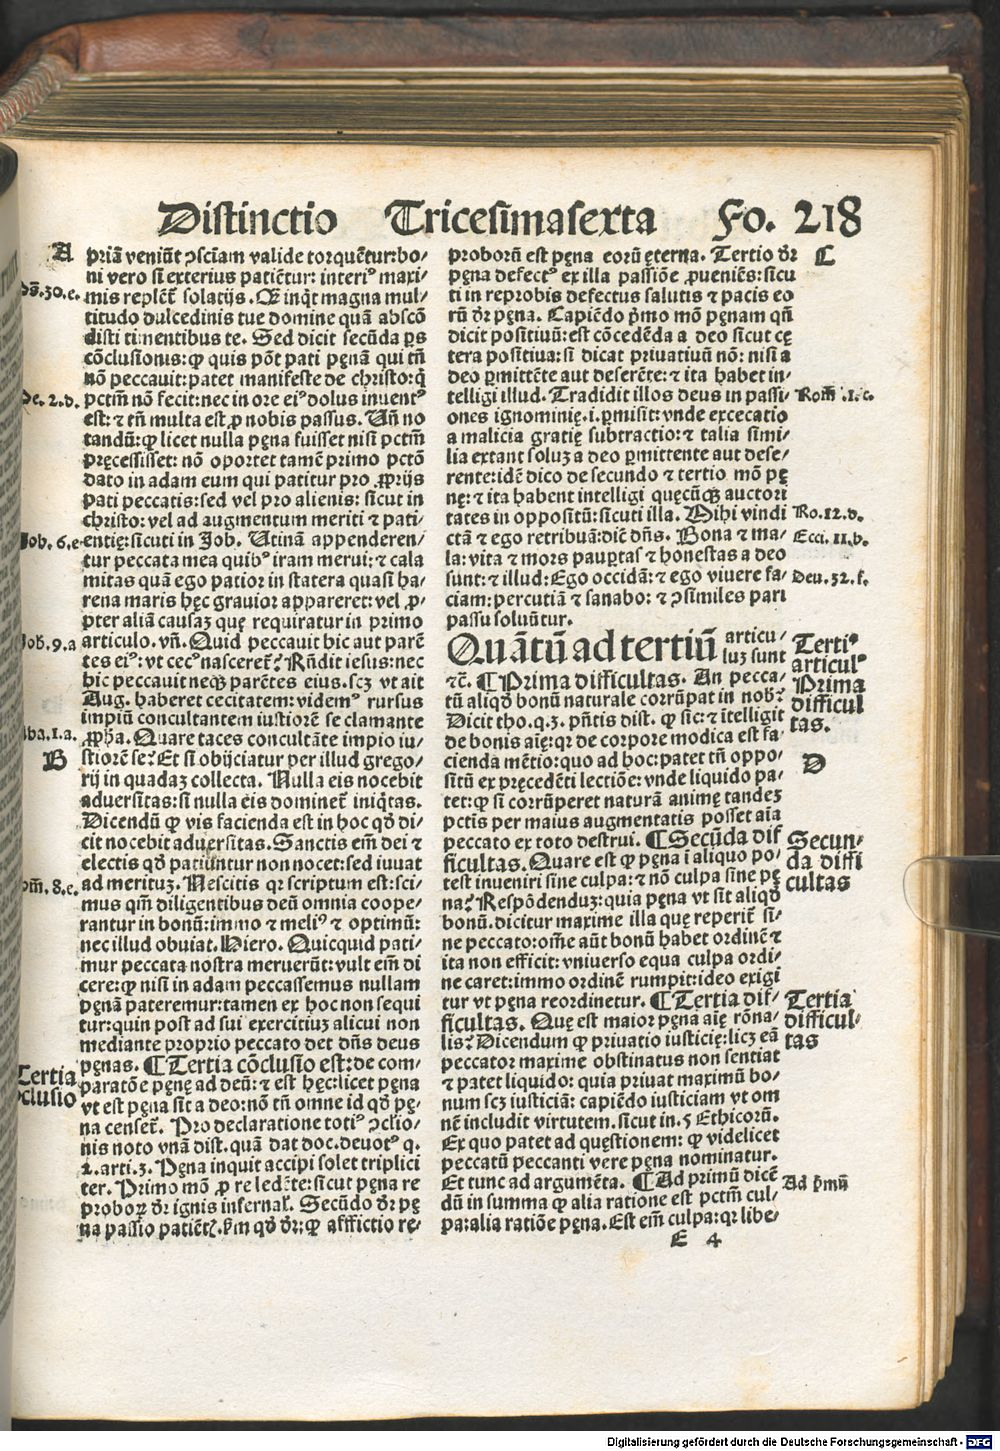 Distinctio Tricesimasexta Fo. 218
A
priā veniūt ↄsciam valide torquētur: bo⸗
ni vero si exterius patiētur: interiꝰ maxi⸗
ps. 30. e. mis replēt᷑ solatijs. Ē inq̇t magna mul⸗
titudo dulcedinis tue domine quā abscō
disti timentibus te. Sed dicit secūda ps
cōclusionis: ꝙ quis pōt pati pęnā qui tn̄
nō peccauit: patet manifeste de christo: q̇
Pe. 2. d. pctm̄ nō fecit: nec in ore eiꝰ dolus inuentꝰ
est: ⁊ tn̄ multa est ꝓ nobis passus. Un̄ no
tandū: ꝙ licet nulla pęna fuisset nisi pctm̄
pręcessisset: nō oportet tamē primo pctō
dato in adam eum qui patitur pro ꝓprijs
pati peccatis: sed vel pro alienis: sicut in
christo: vel ad augmentum meriti ⁊ pati⸗
Job. 6. e. entię: sicuti in Job. Utinā appenderen⸗
tur peccata mea quibꝰ iram merui: ⁊ cala
mitas quā ego patior in statera quasi ha⸗
rena maris hęc grauior appareret: vel ꝓ⸗
pter aliā causaꝫ quę requiratur in primo
Joh. 9. a articulo. vn̄. Quid peccauit hic aut parē
tes eiꝰ: vt cecꝰ nasceret᷑? Rn̄dit iesus: nec
hic peccauit neqꝫ parētes eius. scꝫ vt ait
Aug. haberet cecitatem: videmꝰ rursus
impiū concultantem iustiorē se clamante
Aba. 1. a. ꝓpha. Quare taces concultāte impio iu⸗
B stiorē se? Et si obijciatur per illud grego⸗
rij in quadaꝫ collecta. Nulla eis nocebit
aduersitas: si nulla eis dominet᷑ iniq̇tas.
Dicendū ꝙ vis facienda est in hoc qd̄ di⸗
cit nocebit aduersitas. Sanctis em̄ dei ⁊
electis qd̄ patiuntur non nocet: sed iuuat
Rom̄. 8. e. ad merituꝫ. Nescitis qꝛ scriptum est: sci⸗
mus qm̄ diligentibus deū omnia coope⸗
rantur in bonū: immo ⁊ meliꝰ ⁊ optimū:
nec illud obuiat. Hiero. Quicquid pati⸗
mur peccata nostra meruerūt: vult em̄ di
cere: ꝙ nisi in adam peccassemus nullam
pęnā pateremur: tamen ex hoc non sequi
tur: quin post ad sui exercitiuꝫ alicui non
mediante proprio peccato det dn̄s deus
pęnas. ¶ Tertia cōclusio est: de com⸗
Tertia
ↄclusio
paratōe pęnę ad deū: ⁊ est hęc: licet pęna
vt est pęna sit a deo: nō tn̄ omne id qd̄ pę⸗
na censet᷑. Pro declaratione totiꝰ ↄclio⸗
nis noto vnā dist. quā dat doc. deuotꝰ q.
2. arti. 3. Pęna inquit accipi solet triplici
ter. Primo mō ꝓ re ledēte: sicut pęna re
proboꝝ dr̄ ignis infernalꝭ. Secūdo dr̄ pę
na passio patiētꝭ. ẜm qd̄ dr̄: ꝙ afflictio rę⸗
proborū est pęna eorū ęterna. Tertio dr̄ C
pęna defectꝰ ex illa passiōe ꝓueniēs: sicu
ti in reprobis defectus salutis ⁊ pacis eo
rū dr̄ pęna. Capiēdo p̄mo mō pęnam qn̄
dicit positiuū: est cōcedēda a deo sicut cę
tera positiua: si dicat priuatiuū nō: nisi a
deo ꝑmittēte aut deserēte: ⁊ ita habet in⸗
telligi illud. Tradidit illos deus in passi⸗ Rom̄. 1. c.
ones ignominię. i. ꝑmisit: vnde excecatio
a malicia gratię subtractio: ⁊ talia simi⸗
lia extant soluꝫ a deo ꝑmittente aut dese⸗
rente: idē dico de secundo ⁊ tertio mō pę
nę: ⁊ ita habent intelligi quęcūqꝫ auctori
tates in oppositū: sicuti illa. Mihi vindi Ro. 12. d.
ctā ⁊ ego retribuā: dic̄ dn̄s. Bona ⁊ ma⸗ Ecci. 11. b.
la: vita ⁊ mors pauꝑtas ⁊ honestas a deo
sunt: ⁊ illud: Ego occidā: ⁊ ego viuere fa⸗ Deu. 32. f.
ciam: percutiā ⁊ sanabo: ⁊ ↄsimiles pari
passu soluūtur.
Quātū ad tertiū articu⸗
luꝫ sunt
Tertiꝰ
articulꝰ
⁊c̄. ¶ Prima difficultas. An pecca⸗
Prima
difficul
tas.
tū aliqd̄ bonū naturale corrūpat in nob?
Dicit tho. q. 3. pn̄tis dist. ꝙ sic: ⁊ ītelligit
de bonis aīę: qꝛ de corpore modica est fa⸗
cienda mētio: quo ad hoc: patet tn̄ oppo⸗ D
sitū ex pręcedēti lectiōe: vnde liquido pa⸗
tet: ꝙ si corrūperet naturā animę tandeꝫ
pctis per maius augmentatis posset aīa
peccato ex toto destrui. ¶ Secūda dif
Secun⸗
da diffi
cultas
ficultas. Quare est ꝙ pęna ī aliquo po⸗
test inueniri sine culpa: ⁊ nō culpa sine pę
na? Respōdenduꝫ: quia pęna vt sit aliqd̄
bonū. dicitur maxime illa que reperit᷑ si⸗
ne peccato: om̄e aūt bonū habet ordinē ⁊
ita non efficit: vniuerso equa culpa ordi⸗
ne caret: immo ordinē rumpit: ideo exigi
tur vt pęna reordinetur. ¶ Tertia dif⸗
Tertia
difficul⸗
tas
ficultas. Quę est maior pęna aīę rōna⸗
lis? Dicendum ꝙ priuatio iusticię: licꝫ eā
peccator maxime obstinatus non sentiat
⁊ patet liquido: quia priuat maximū bo⸗
num scꝫ iusticiā: capiēdo iusticiam vt om
nē includit virtutem. sicut in. 5 Ethicorū.
Ex quo patet ad quęstionem: ꝙ videlicet
peccatū peccanti vere pęna nominatur.
Et tunc ad argumēta. ¶ Ad primū dicē Ad p̄mū
dū in summa ꝙ alia ratione est pctm̄ cul⸗
pa: alia ratiōe pęna. Est em̄ culpa: qꝛ libe⸗
E 4
Digitalisierung gefördert durch die Deutsche Forschungsgemeinschaft - DFG